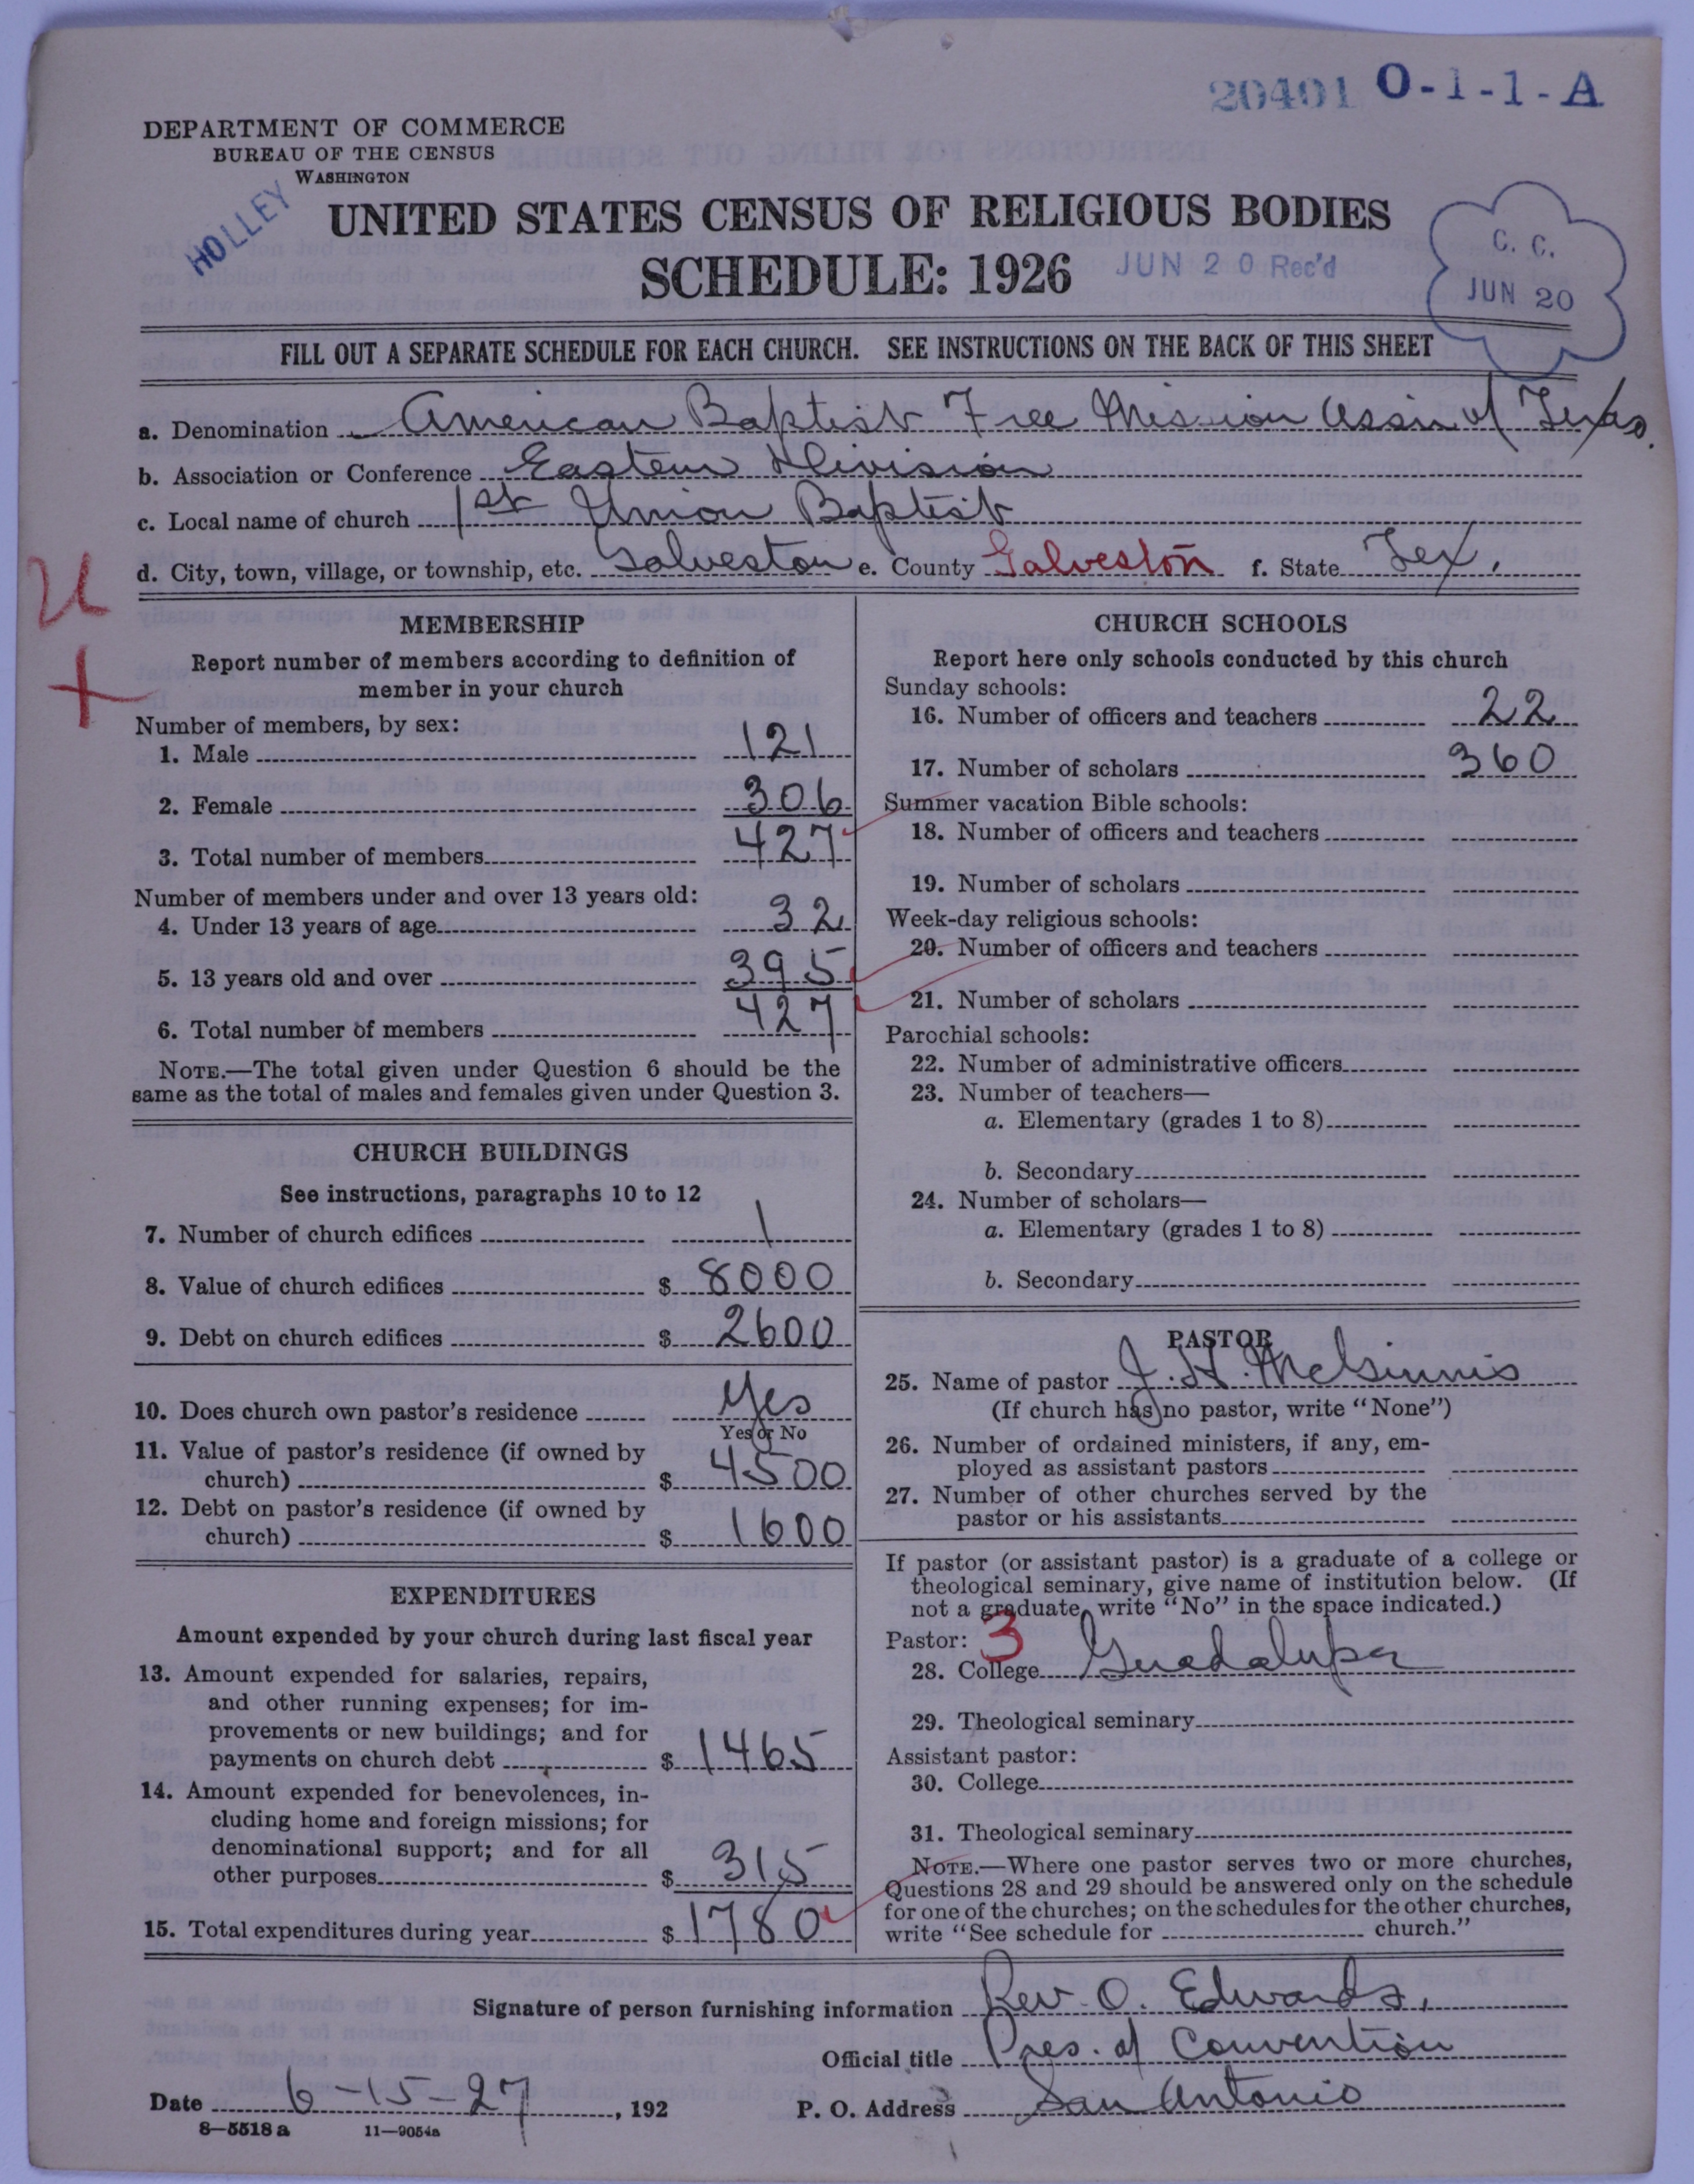 20401 O-1-1-A
DEPARTMENT OF COMMERCE
BUREAU OF THE CENSUS
WASHINGTON
HOLLEY
UNITED STATES CENSUS OF RELIGIOUS BODIES
SCHEDULE: 1926
JUN 20 Rec'd
C. C.
JUN 20
FILL OUT A SEPARATE SCHEDULE FOR EACH CHURCH. SEE INSTRUCTIONS ON THE BACK OF THIS SHEET
a. Denomination American Baptist Free Mission Assn of Texas.
b. Association or Conference Eastern Division
c. Local name of church 1st Union Baptist
d. City, town, village, or township, etc. Galveston e. County Galveston f. State Tex.
MEMBERSHIP
Report number of members according to definition of
member in your church
Number of members, by sex:
1. Male 121
2. Female 306
3. Total number of members 427
Number of members under and over 13 years old:
4. Under 13 years of age 32
5. 13 years old and over 395
6. Total number of members 427
NOTE.—The total given under Question 6 should be the
same as the total of males and females given under Question 3.
CHURCH BUILDINGS
See instructions, paragraphs 10 to 12
7. Number of church edifices 1
8. Value of church edifices $ 8000
9. Debt on church edifices $ 2600
10. Does church own pastor's residence Yes
Yes or No
11. Value of pastor's residence (if owned by
church) $ 4500
12. Debt on pastor's residence (if owned by
church) $ 1600
EXPENDITURES
Amount expended by your church during last fiscal year
13. Amount expended for salaries, repairs,
and other running expenses; for im-
provements or new buildings; and for
payments on church debt $ 1465
14. Amount expended for benevolences, in-
cluding home and foreign missions; for
denominational support; and for all
other purposes $ 315
15. Total expenditures during year $ 1780
CHURCH SCHOOLS
Report here only schools conducted by this church
Sunday schools:
16. Number of officers and teachers 22
17. Number of scholars 360
Summer vacation Bible schools:
18. Number of officers and teachers
19. Number of scholars
Week-day religious schools:
20. Number of officers and teachers
21. Number of scholars
Parochial schools:
22. Number of administrative officers
23. Number of teachers—
a. Elementary (grades 1 to 8)
b. Secondary
24. Number of scholars—
a. Elementary (grades 1 to 8)
b. Secondary
PASTOR
25. Name of pastor J. H. McGinnis
(If church has no pastor, write "None")
26. Number of ordained ministers, if any, em-
ployed as assistant pastors
27. Number of other churches served by the
pastor or his assistants
If pastor (or assistant pastor) is a graduate of a college or
theological seminary, give name of institution below. (If
not a graduate, write "No" in the space indicated.)
Pastor: 3
28. College Guadalupa
29. Theological seminary
Assistant pastor:
30. College
31. Theological seminary
NOTE.—Where one pastor serves two or more churches,
Questions 28 and 29 should be answered only on the schedule
for one of the churches; on the schedules for the other churches,
write "See schedule for church."
Signature of person furnishing information Rev. O. Edwards,
Official title Pres. of Convention
Date 6-15-27, 192 P. O. Address San Antonio
8—5518 a 11—9054a